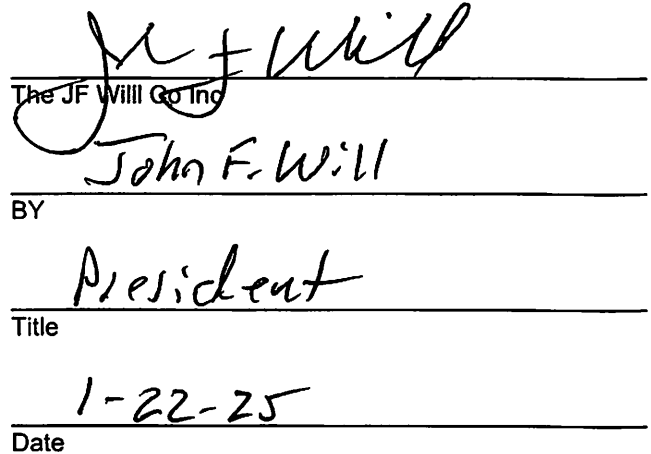 John F Will
The JF Willl Co Inc
John F. Will
BY
President
Title
1-22-25
Date